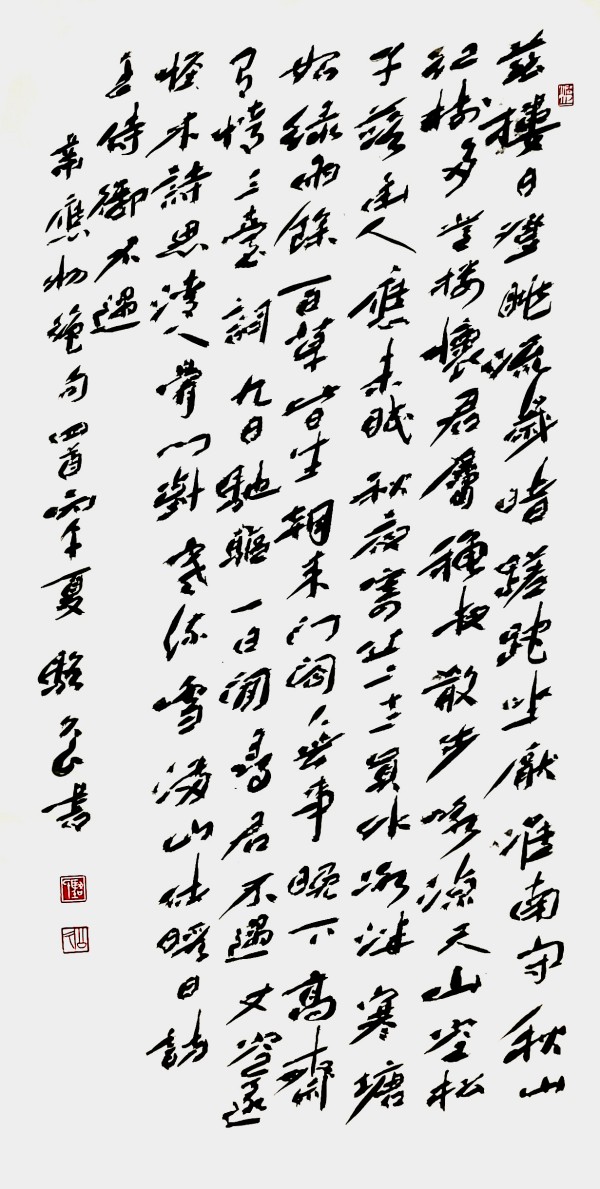 茲樓日登眺流歲暗蹉跎坐厭淮南守秋山
紅樹多登樓懷君屬秋夜散步咏涼天山空松
子落幽人應未眠秋夜寄丘二十二員外冰泮寒塘
始綠雨餘百草皆生朝來門閤無事晚下高齋
有情三臺詞九日馳驅一日閒尋君不遇又空還
怪來詩思清人骨門對寒流雪滿山休暇日訪
王侍御不遇
韋應物絕句四首夏書